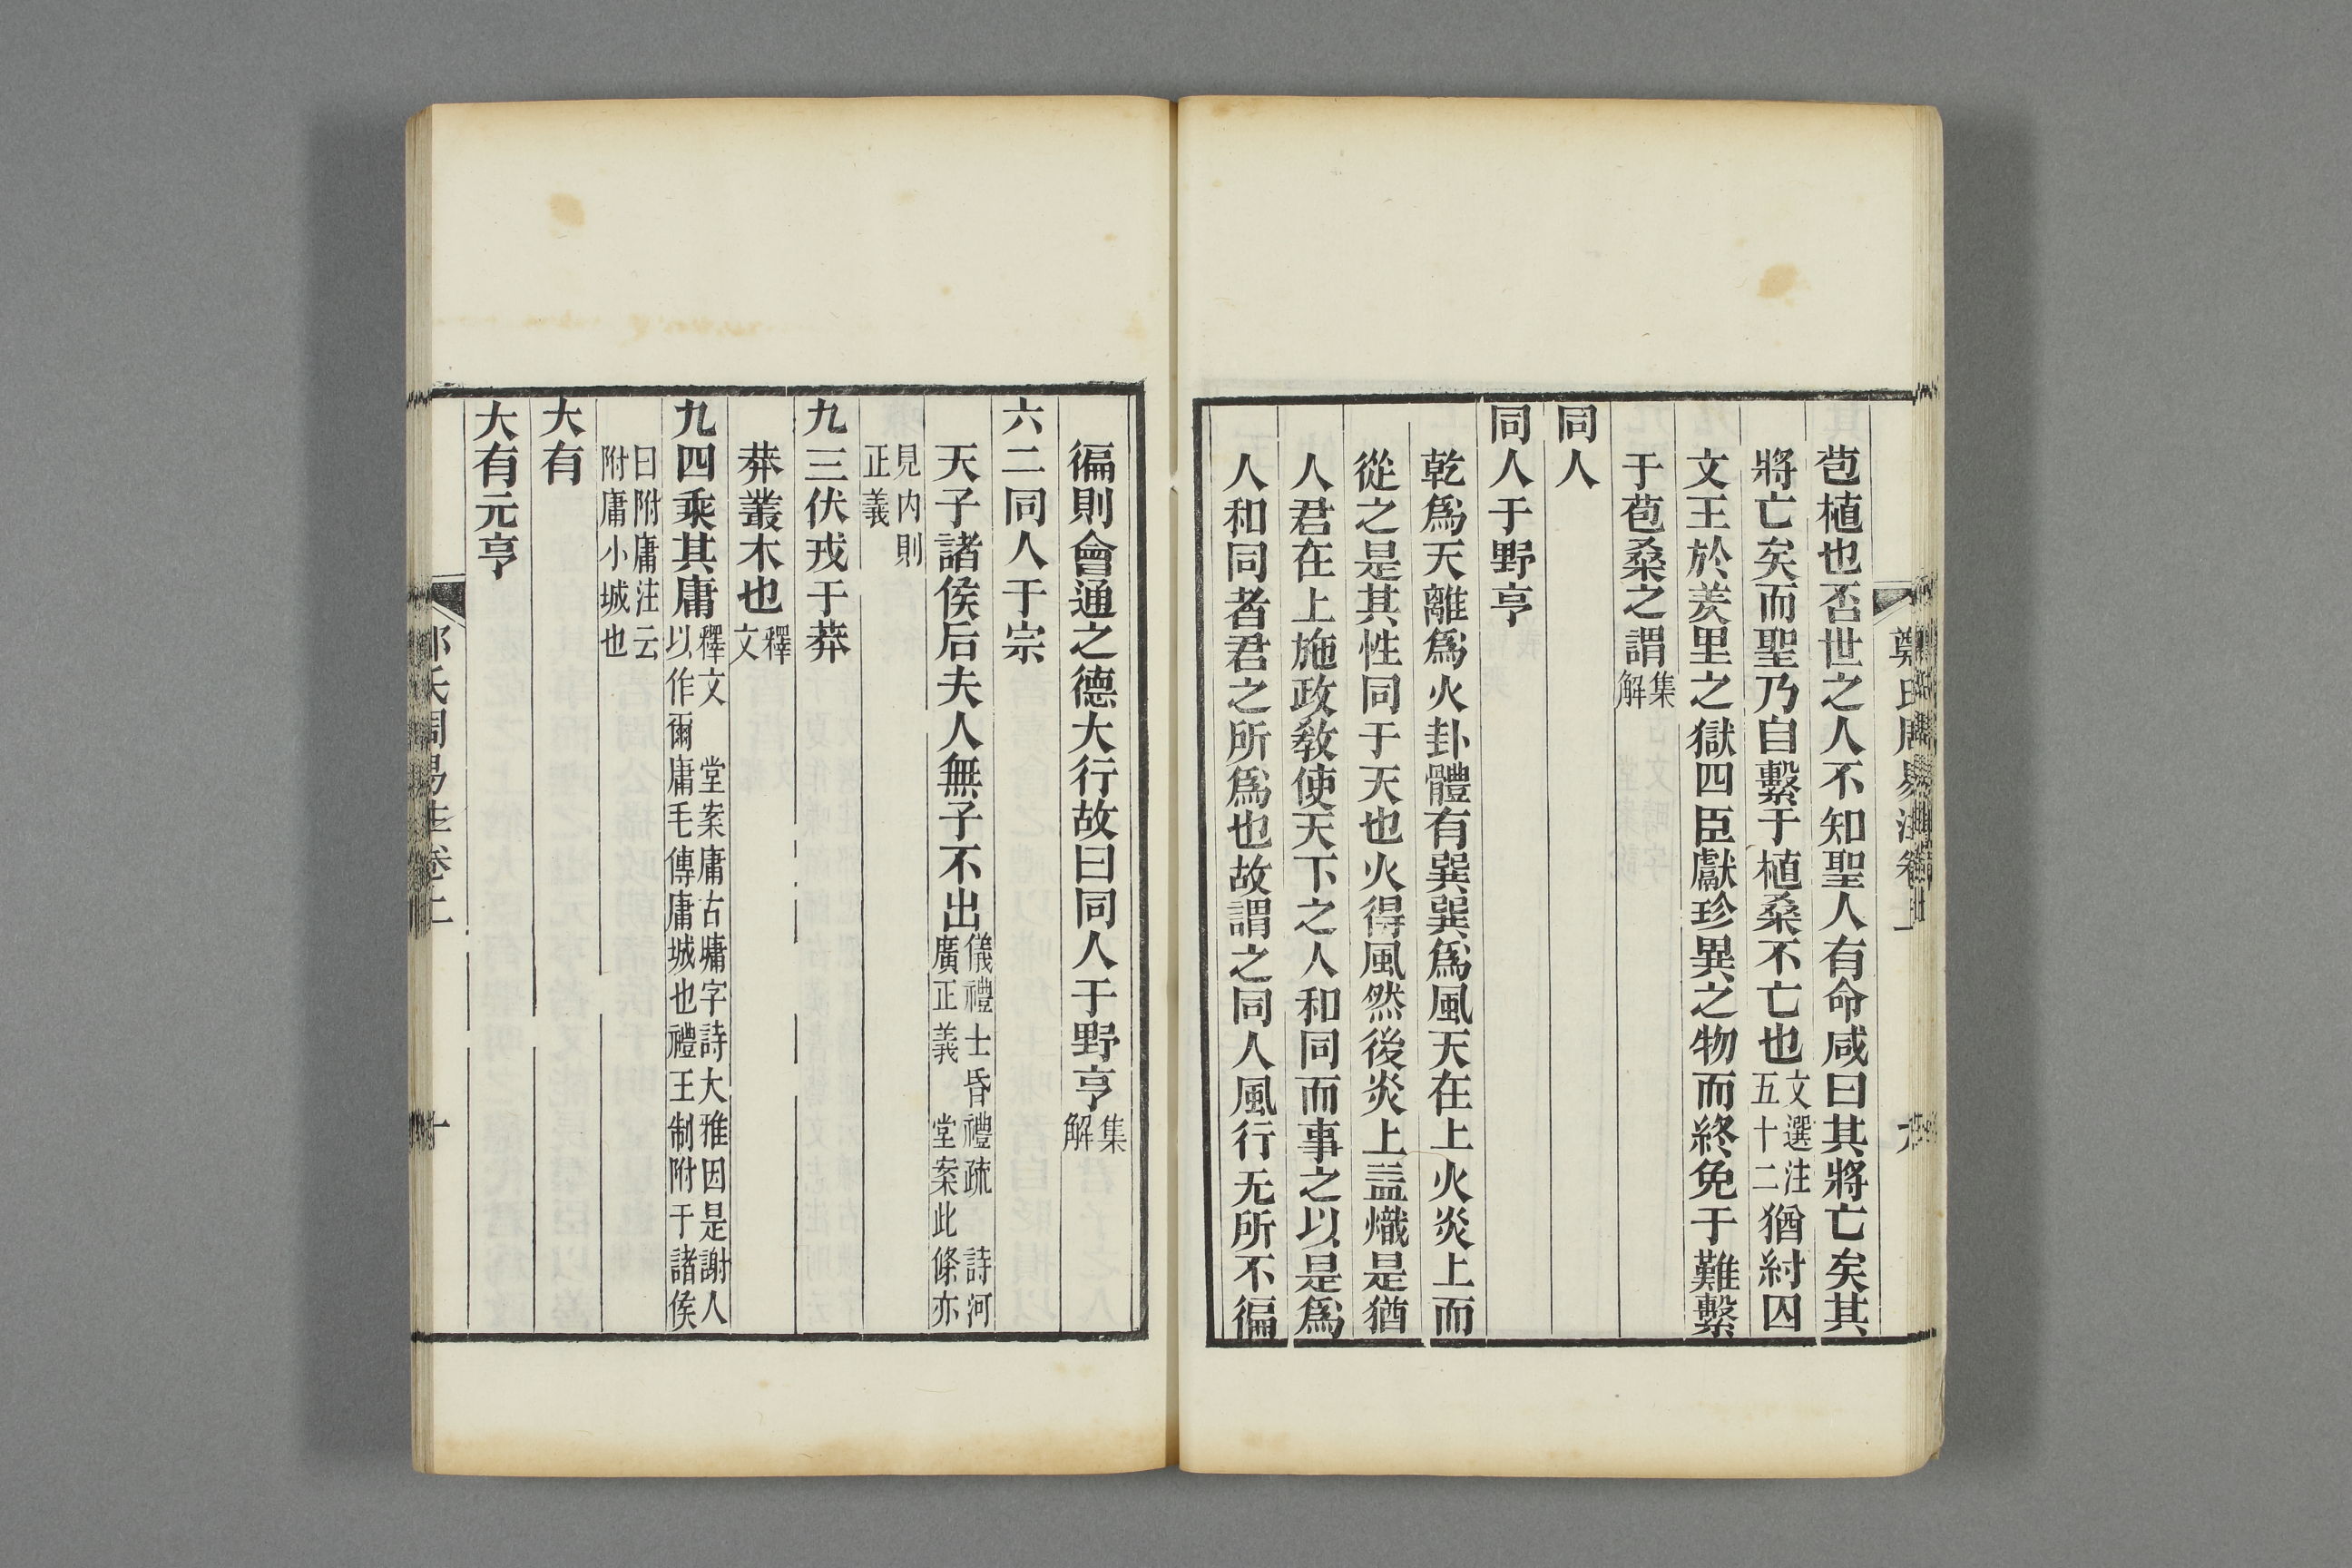 苞植也否世之人不知聖人有命咸曰其將亡矣其
將亡矣而聖乃自繫于植桑不亡也文選注五十二猶紂囚
文王於羑里之獄四臣獻珍異之物而終免于難繫
于苞桑之謂集解
同人
同人于野亨
乾爲天離爲火卦體有巽巽爲風天在上火炎上而
從之是其性同于天也火得風然後炎上益熾是猶
人君在上施政敎使天下之人和同而事之以是爲
人和同者君之所爲也故謂之同人風行无所不徧
徧則會通之德大行故曰同人于野亨集解
六二同人于宗
天子諸侯后夫人無子不出儀禮士昏禮疏 詩河廣正義 堂案此條亦
見內則正義
九三伏戎于莽
莽叢木也釋文
九四乘其庸釋文 堂案庸古墉字詩大雅因是謝人以作爾庸毛傳庸城也禮王制附于諸侯
曰附庸注云附庸小城也
大有
大有元亨